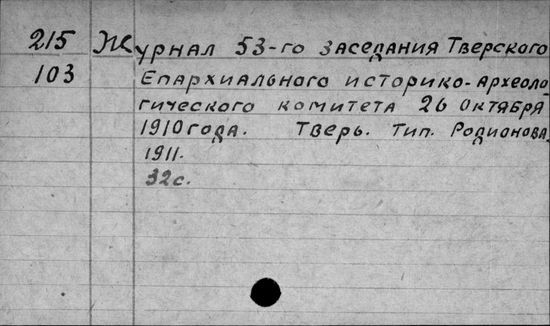 215 Журнал 53-го заседания Тверского
103 Епархиального историко-археоло
гического комитета 26 октября
1910 года. Тверь. Тип. Родионова
1911.
32с.